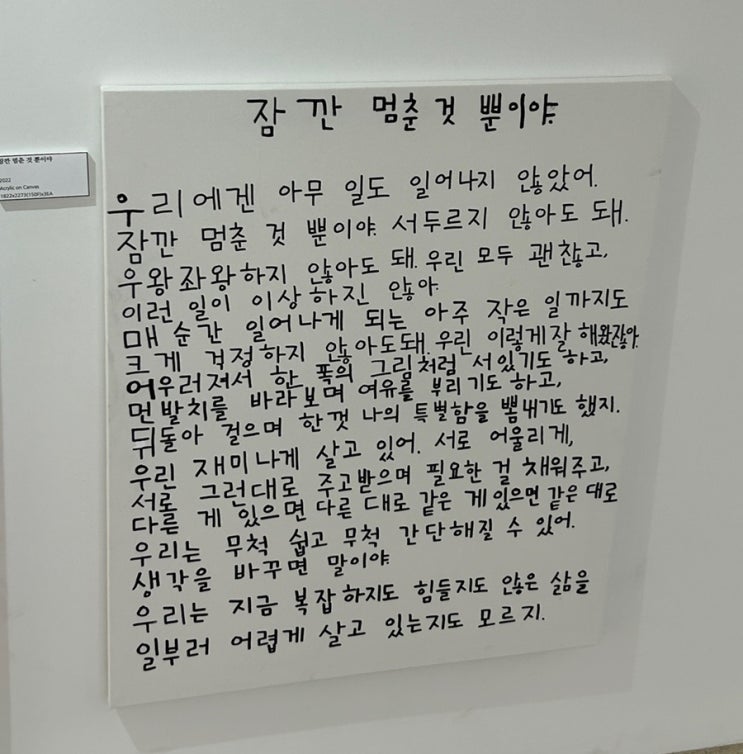 잠깐 멈춘 것 뿐이야
2022
Acrylic on Canvas
잠깐 멈춘 것 뿐이야.
우리에겐 아무 일도 일어나지 않았어.
잠깐 멈춘 것 뿐이야. 서두르지 않아도 돼.
우왕좌왕하지 않아도 돼. 우린 모두 괜찮고,
이런 일이 이상하진 않아.
매 순간 일어나게 되는 아주 작은 일까지도
크게 걱정하지 않아도돼. 우린 이렇게잘 해왔잖아.
어우러져서 한 폭의 그림처럼 서있기도 하고,
먼발치를 바라보며 여유를 부리기도 하고,
뒤돌아 걸으며 한껏 나의 특별함을 뽐내기도 했지.
우린 재미나게 살고 있어. 서로 어울리게,
서로 그런대로 주고받으며 필요한 걸 채워주고,
다른 게 있으면 다른 대로 같은 게있으면 같은 대로
우리는 무척 쉽고 무척 간단해질 수 있어.
생각을 바꾸면 말이야.
우리는 지금 복잡하지도 힘들지도 않은 삶을
일부러 어렵게 살고 있는지도 모르지.